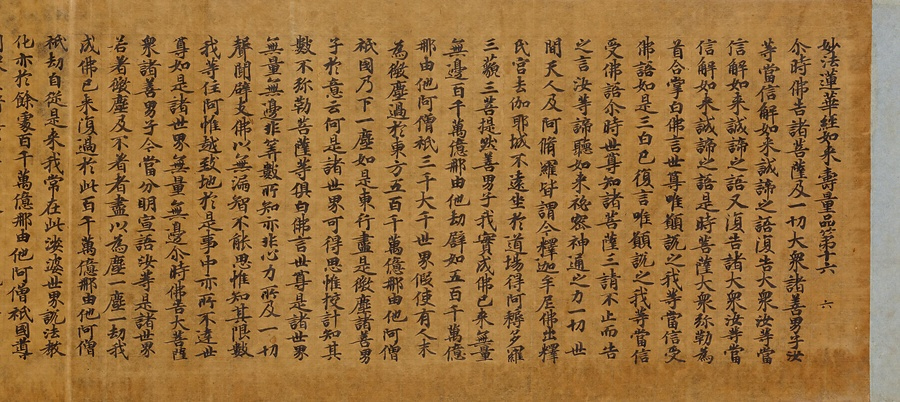 妙法蓮華經如來壽量品第十六 六
尒時佛告諸菩薩及一切大衆諸善男子汝
等當信解如來誠諦之語復告大衆汝等當
信解如來誠諦之語又復告諸大衆汝等當
信解如來誠諦之語是時菩薩大衆弥勒為
首合掌白佛言世尊唯願說之我等當信受
佛語如是三白已復言唯願說之我等當信
受佛語尒時世尊知諸菩薩三請不止而告
之言汝等諦聽如來祕密神通之力一切世
間天人及阿脩羅皆謂今釋迦牟尼佛出釋
氏宮去伽耶城不遠坐於道場得阿耨多羅
三藐三菩提然善男子我實成佛已來無量
無邊百千萬億那由他劫譬如五百千萬億
那由他阿僧祇三千大千世界假使有人末
為微塵過於東方五百千萬億那由他阿僧
祇國乃下一塵如是東行盡是微塵諸善男
子於意云何是諸世界可得思惟挍計知其
數不弥勒菩薩等俱白佛言世尊是諸世界
無量無邊非筭數所知亦非心力所及一切
聲聞辟支佛以無漏智不能思惟知其限數
我等住阿惟越致地於是事中亦所不達世
尊如是諸世界無量無邊尒時佛告大菩薩
衆諸善男子今當分明宣語汝等是諸世界
若著微塵及不著者盡以為塵一塵一劫我
成佛已來復過於此百千萬億那由他阿僧
祇劫自從是來我常在此娑婆世界說法教
化亦於餘處百千萬億那由他阿僧祇國導